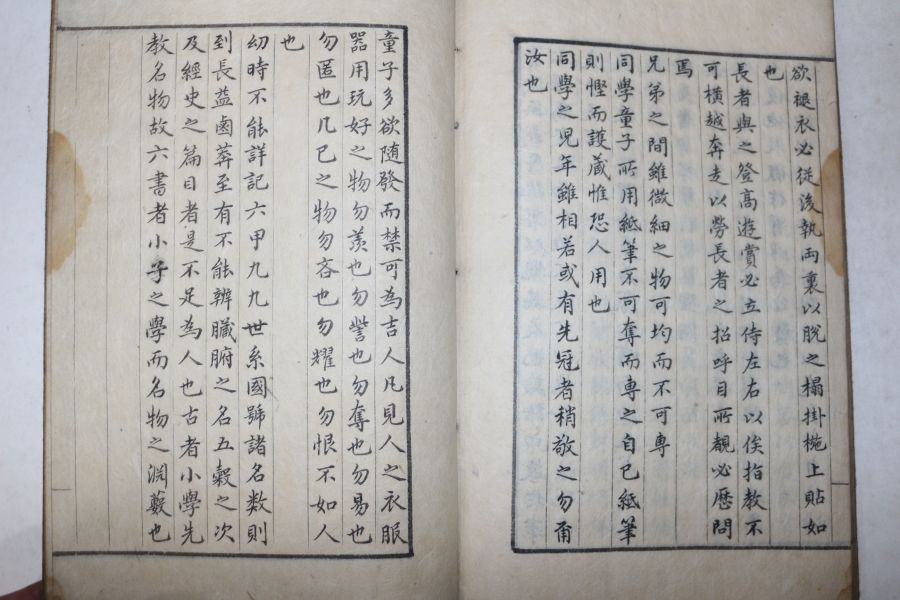 欲褪衣必從後執両裏以脫之榻掛椸上貼如
也
長者與之登高遊賞必立侍左右以俟指教不
可橫越奔走以勞長者之招呼目所覩必歷問
焉
兄弟之間雖微細之物可均而不可專
同學童子所用紙筆不可奪而專之自已紙筆
則慳而護藏惟恐人用也
同學之児年雖相若或有先冠者稍敬之勿甭
汝也
童子多欲随發而禁可為吉人凡見人之衣服
器用玩好之物勿羨也勿訾也勿奪也勿易也
勿匿也凡已之物勿吝也勿耀也勿恨不如人
也
幼時不能詳記六甲九九世系國號諸名数則
到長益鹵莽至有不能辨臓腑之名五穀之次
及經史之篇目者是不足為人也古者小學先
教名物故六書者小子之學而名物之淵藪也